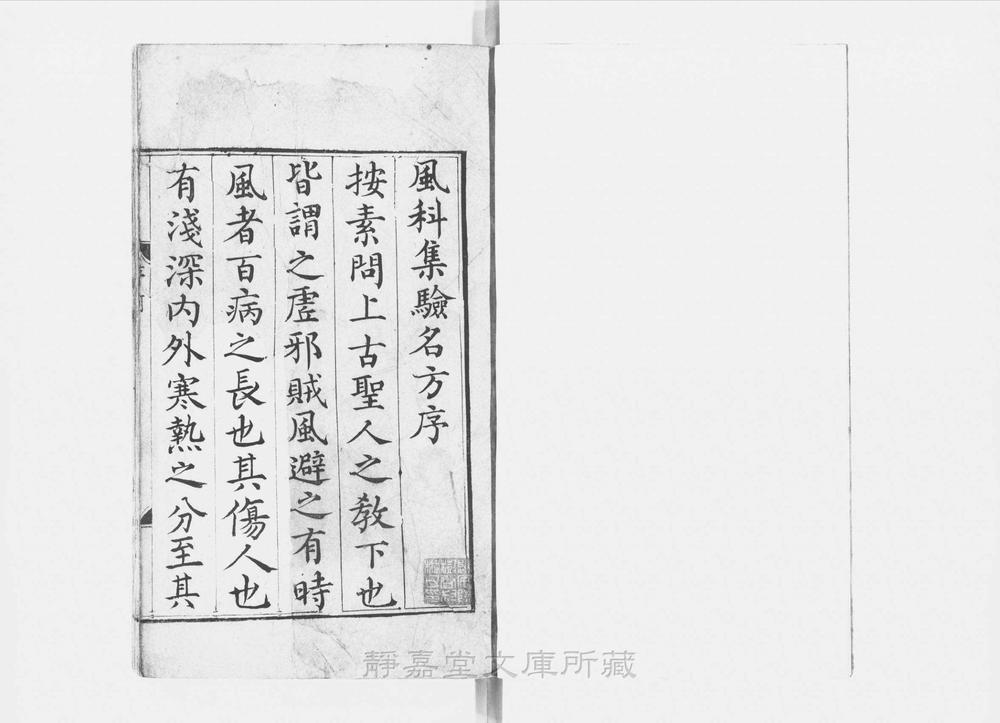 風科集驗名方序
按素問上古聖人之敎下也
皆謂之虛邪賊風避之有時
風者百病之長也其傷人也
有淺深内外寒熱之分至其
靜嘉堂文庫所藏